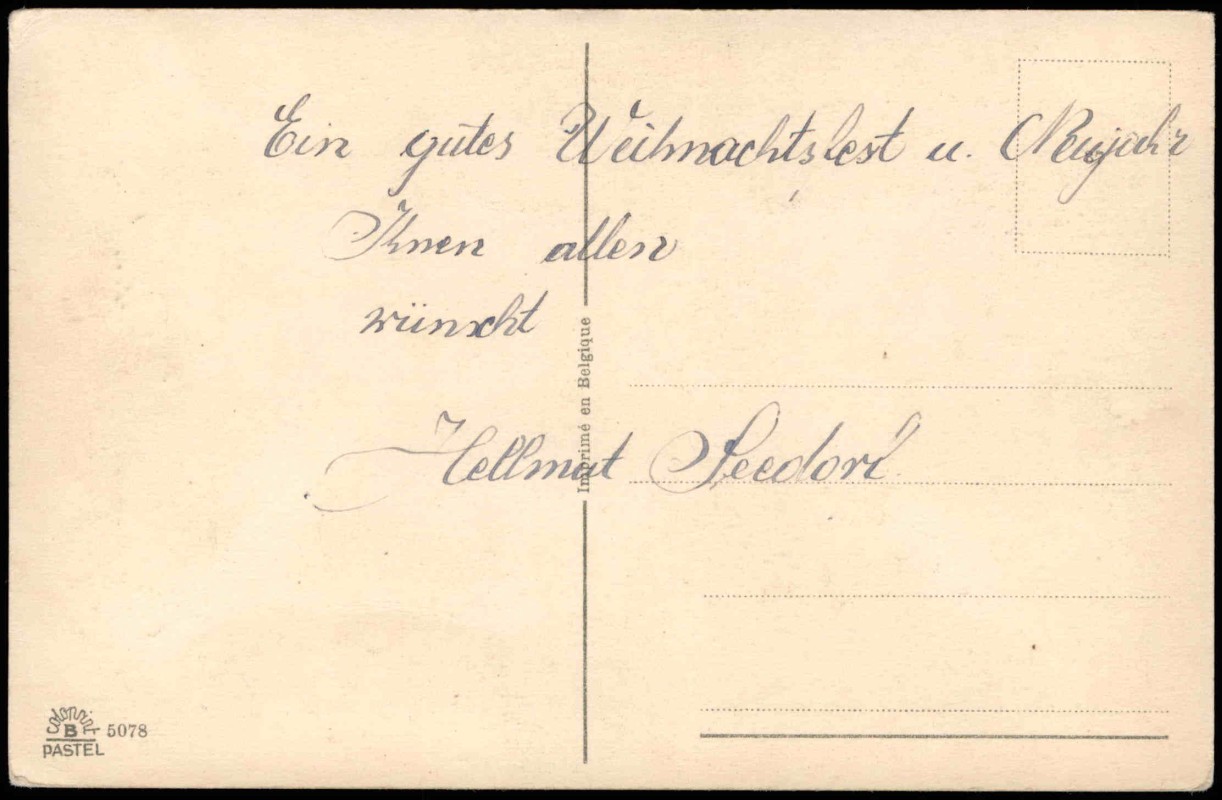 Ein gutes Weihnachtsfest u. Neujahr
Ihnen allen
wünscht
Hellmut Seedorf
Imprimé en Belgique
colorprint
B 5078
PASTEL